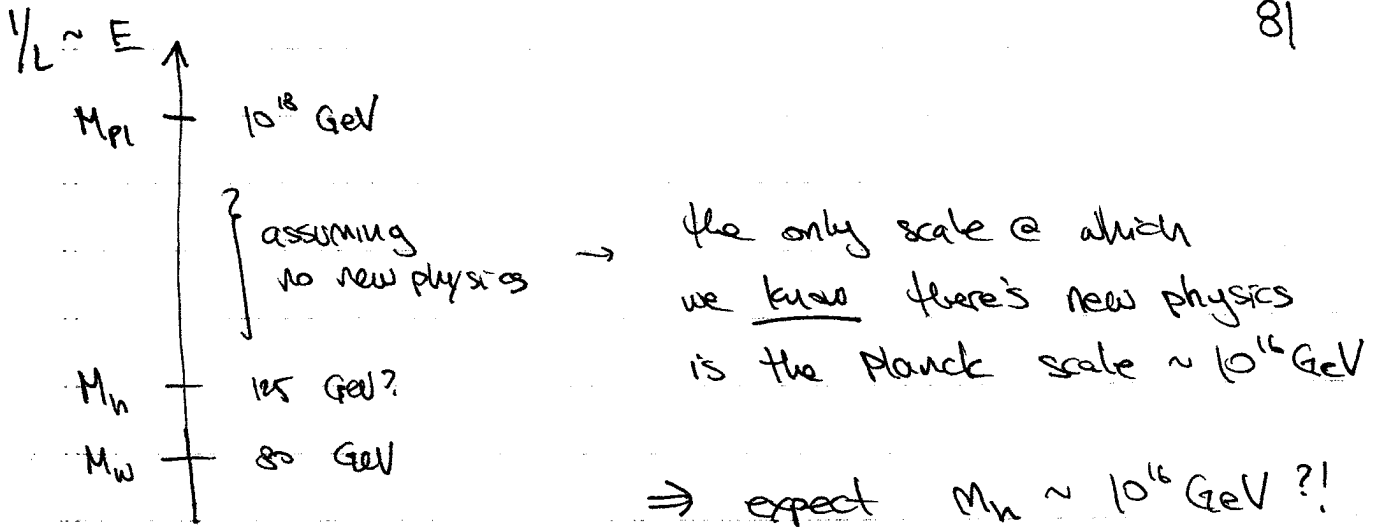 1/L ~ E
81
M_Pl 10^18 GeV
assuming
no new physics → the only scale @ which
we know there's new physics
is the Planck scale ~ 10^16 GeV
M_h 125 GeV?
M_W 80 GeV
⇒ expect M_h ~ 10^16 GeV ?!